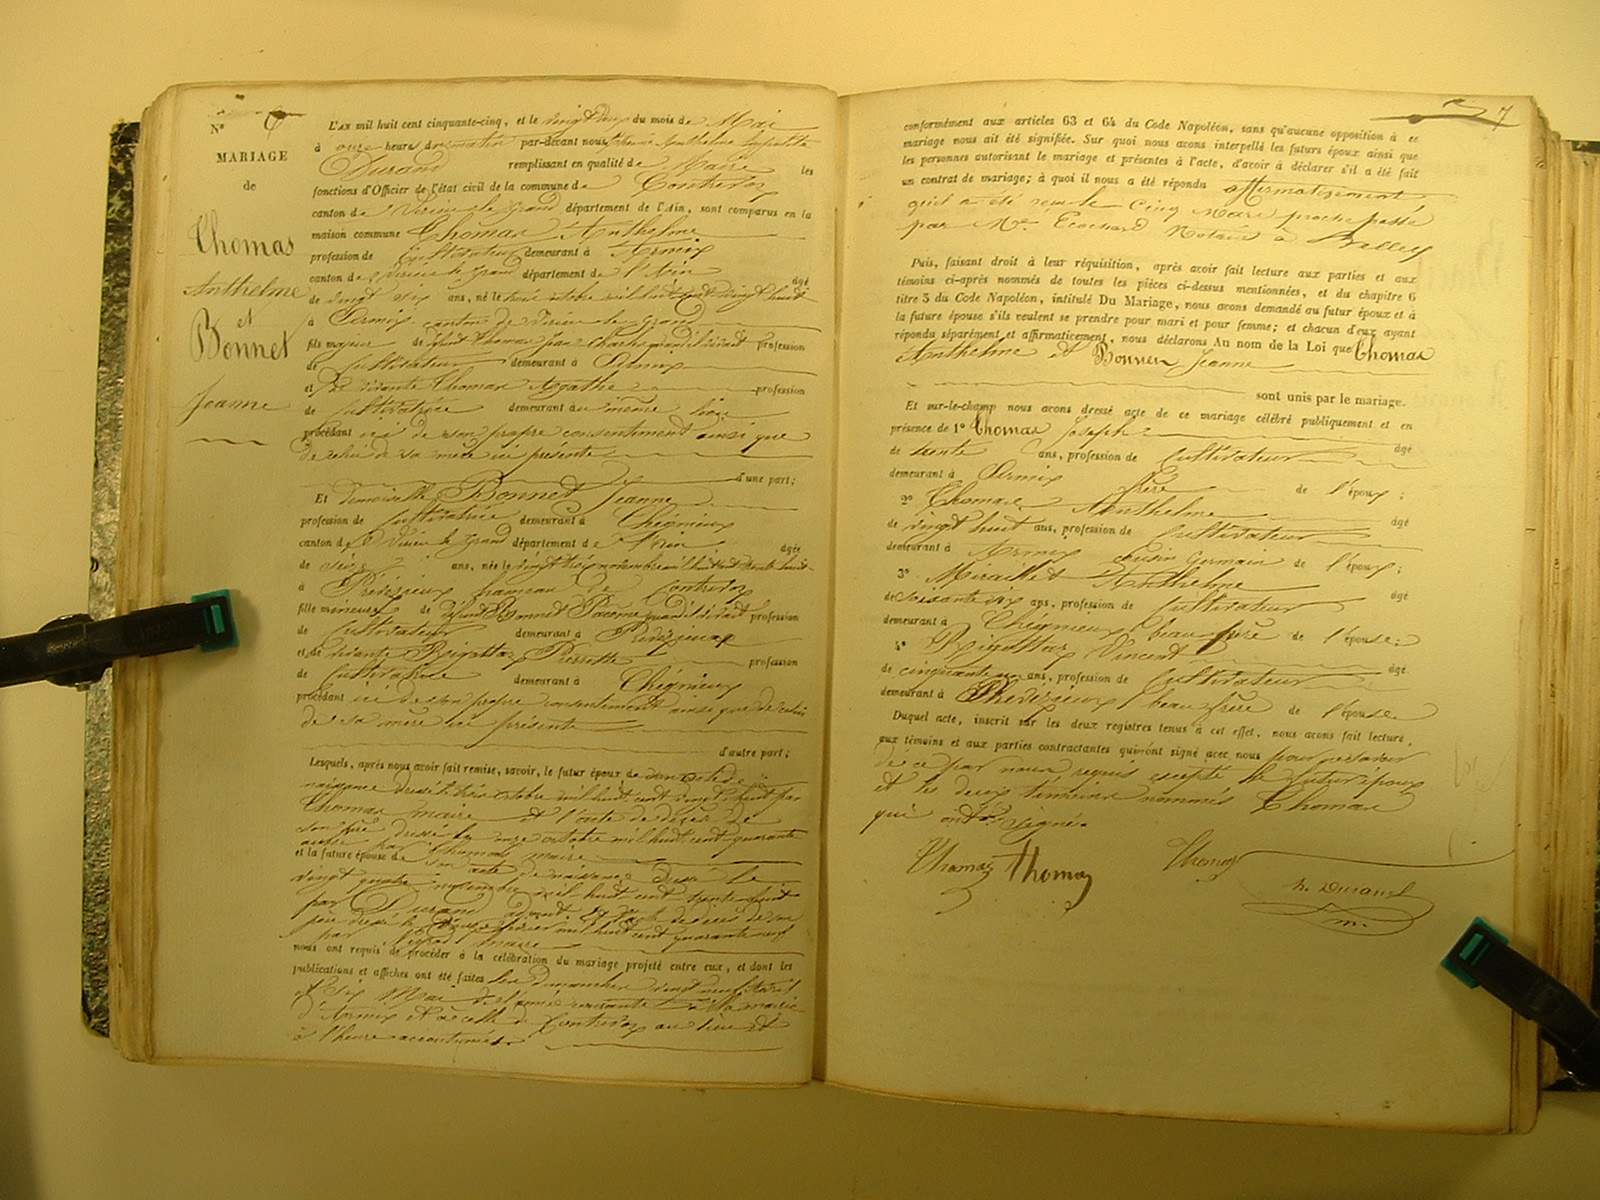 N° 6
MARIAGE
de
Thomas
Anthelme
et
Bonnet
Jeanne
L'AN mil huit cent cinquante-cinq, et le vingt deux du mois de Mai
à onze heures du matin par-devant nous Anthelme hyppolite
Durand remplissant en qualité de Maire les
fonctions d'Officier de l'état civil de la commune de Contrevoz
canton de Virieu le grand département de l'Ain, sont comparus en la
maison commune Thomas Anthelme
profession de Cultivateur demeurant à Armix
canton de Virieu le grand département de l'Ain âgé
de vingt six ans, né le octobre mil huit cent vingt huit
à Armix canton de Virieu le grand
fils majeur de défunt Thomas quand il vivait profession
de Cultivateur demeurant à Armix
et de vivante Thomas Agathe profession
de Cultivatrice demeurant au même lieu
procédant ici de son propre consentement ainsi que
de celui de sa mère ici présente
d'une part;
Et demoiselle Bonnet Jeanne
profession de Cultivatrice demeurant à Cheignieux
canton de Virieu le grand département de l'Ain âgée
de seize ans, née le vingt trois novembre mil huit cent trente huit
à Préveyzieux hameau de Contrevoz
fille mineure de défunt Bonnet quand il vivait profession
de Cultivateur demeurant à
et de vivante Pierrette profession
de Cultivatrice demeurant à Cheignieux
procédant ici de son propre consentement ainsi que de celui
de sa mère ici présente
d'autre part;
Lesquels, après nous avoir fait remise, savoir, le futur époux de son acte de
naissance dressé le octobre mil huit cent vingt huit par
Thomas maire et l'acte de décès de
son père dressé le onze octobre mil huit cent quarante
par Thomas maire
et la future épouse de son acte de naissance dressé le
vingt quatre novembre mil huit cent trente huit
par Durand adjoint et l'acte de décès de son
père dressé le février mil huit cent quarante neuf
par maire
nous ont requis de procéder à la célébration du mariage projeté entre eux, et dont les
publications et affiches ont été faites les dimanches vingt neuf Avril
et six Mai de l'année courante à la mairie
d'Armix et à celle de Contrevoz au lieu et
à l'heure accoutumés
7
conformément aux articles 63 et 64 du Code Napoléon, sans qu'aucune opposition à ce
mariage nous ait été signifiée. Sur quoi nous avons interpellé les futurs époux ainsi que
les personnes autorisant le mariage et présentes à l'acte, d'avoir à déclarer s'il a été fait
un contrat de mariage; à quoi il nous a été répondu affirmativement
qu'il a été reçu le cinq Mars proche passé
par Me Ecochard Notaire à
Puis, faisant droit à leur réquisition, après avoir fait lecture aux parties et aux
témoins ci-après nommés de toutes les pièces ci-dessus mentionnées, et du chapitre 6
titre 5 du Code Napoléon, intitulé Du Mariage, nous avons demandé au futur époux et à
la future épouse s'ils veulent se prendre pour mari et pour femme; et chacun d'eux ayant
répondu séparément et affirmativement, nous déclarons Au nom de la Loi que Thomas
Anthelme et Bonnet Jeanne
sont unis par le mariage.
Et sur-le-champ nous avons dressé acte de ce mariage célébré publiquement et en
présence de 1° Thomas Joseph âgé
de trente ans, profession de Cultivateur
demeurant à Armix frère de l'époux;
2° Thomas Anthelme âgé
de vingt huit ans, profession de Cultivateur
demeurant à Armix cousin Germain de l'époux;
3° Miraillet Anthelme âgé
de soixante six ans, profession de Cultivateur
demeurant à Cheignieux beau frère de l'épouse;
4° Rigottaz Vincent âgé
de cinquante un ans, profession de Cultivateur
demeurant à beau frère de l'épouse.
Duquel acte, inscrit sur les deux registres tenus à cet effet, nous avons fait lecture,
aux témoins et aux parties contractantes qui n'ont signé avec nous pour ne savoir
de ce par nous requis excepté le futur époux
et les deux témoins nommés Thomas
qui ont signé
Thomas Thomas Thomas
h. Durand
m.